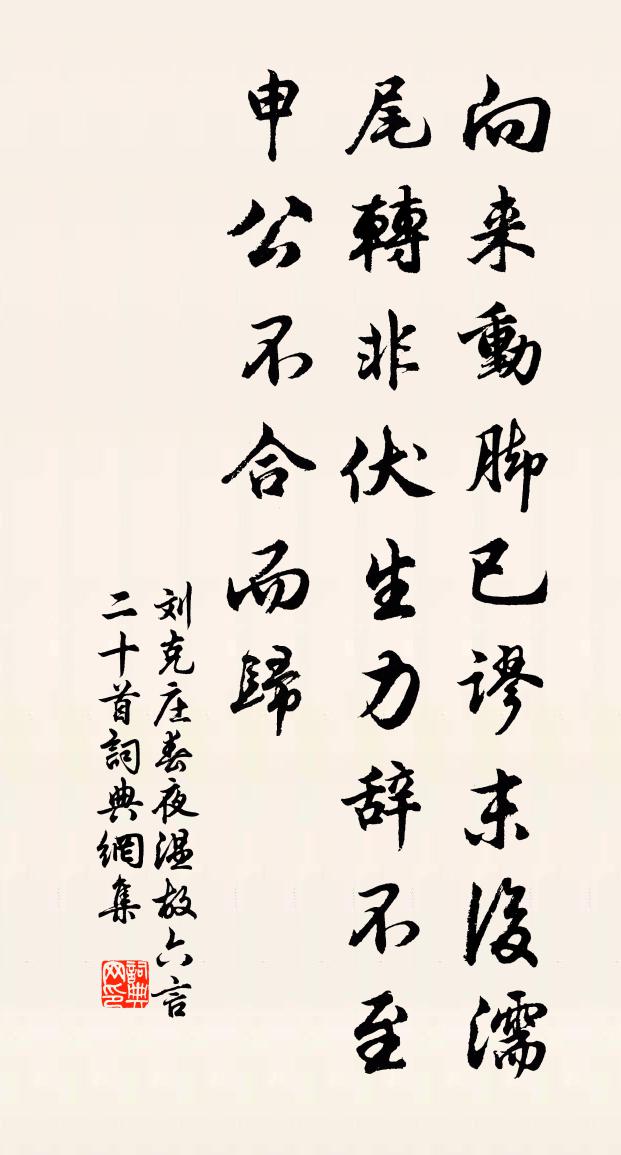 向来動脚已谬末後濡
尾轉非伏生力辞不至
申公不合而歸
刘克庄春夜温故六言
二十首詞典網集
詞典
网印